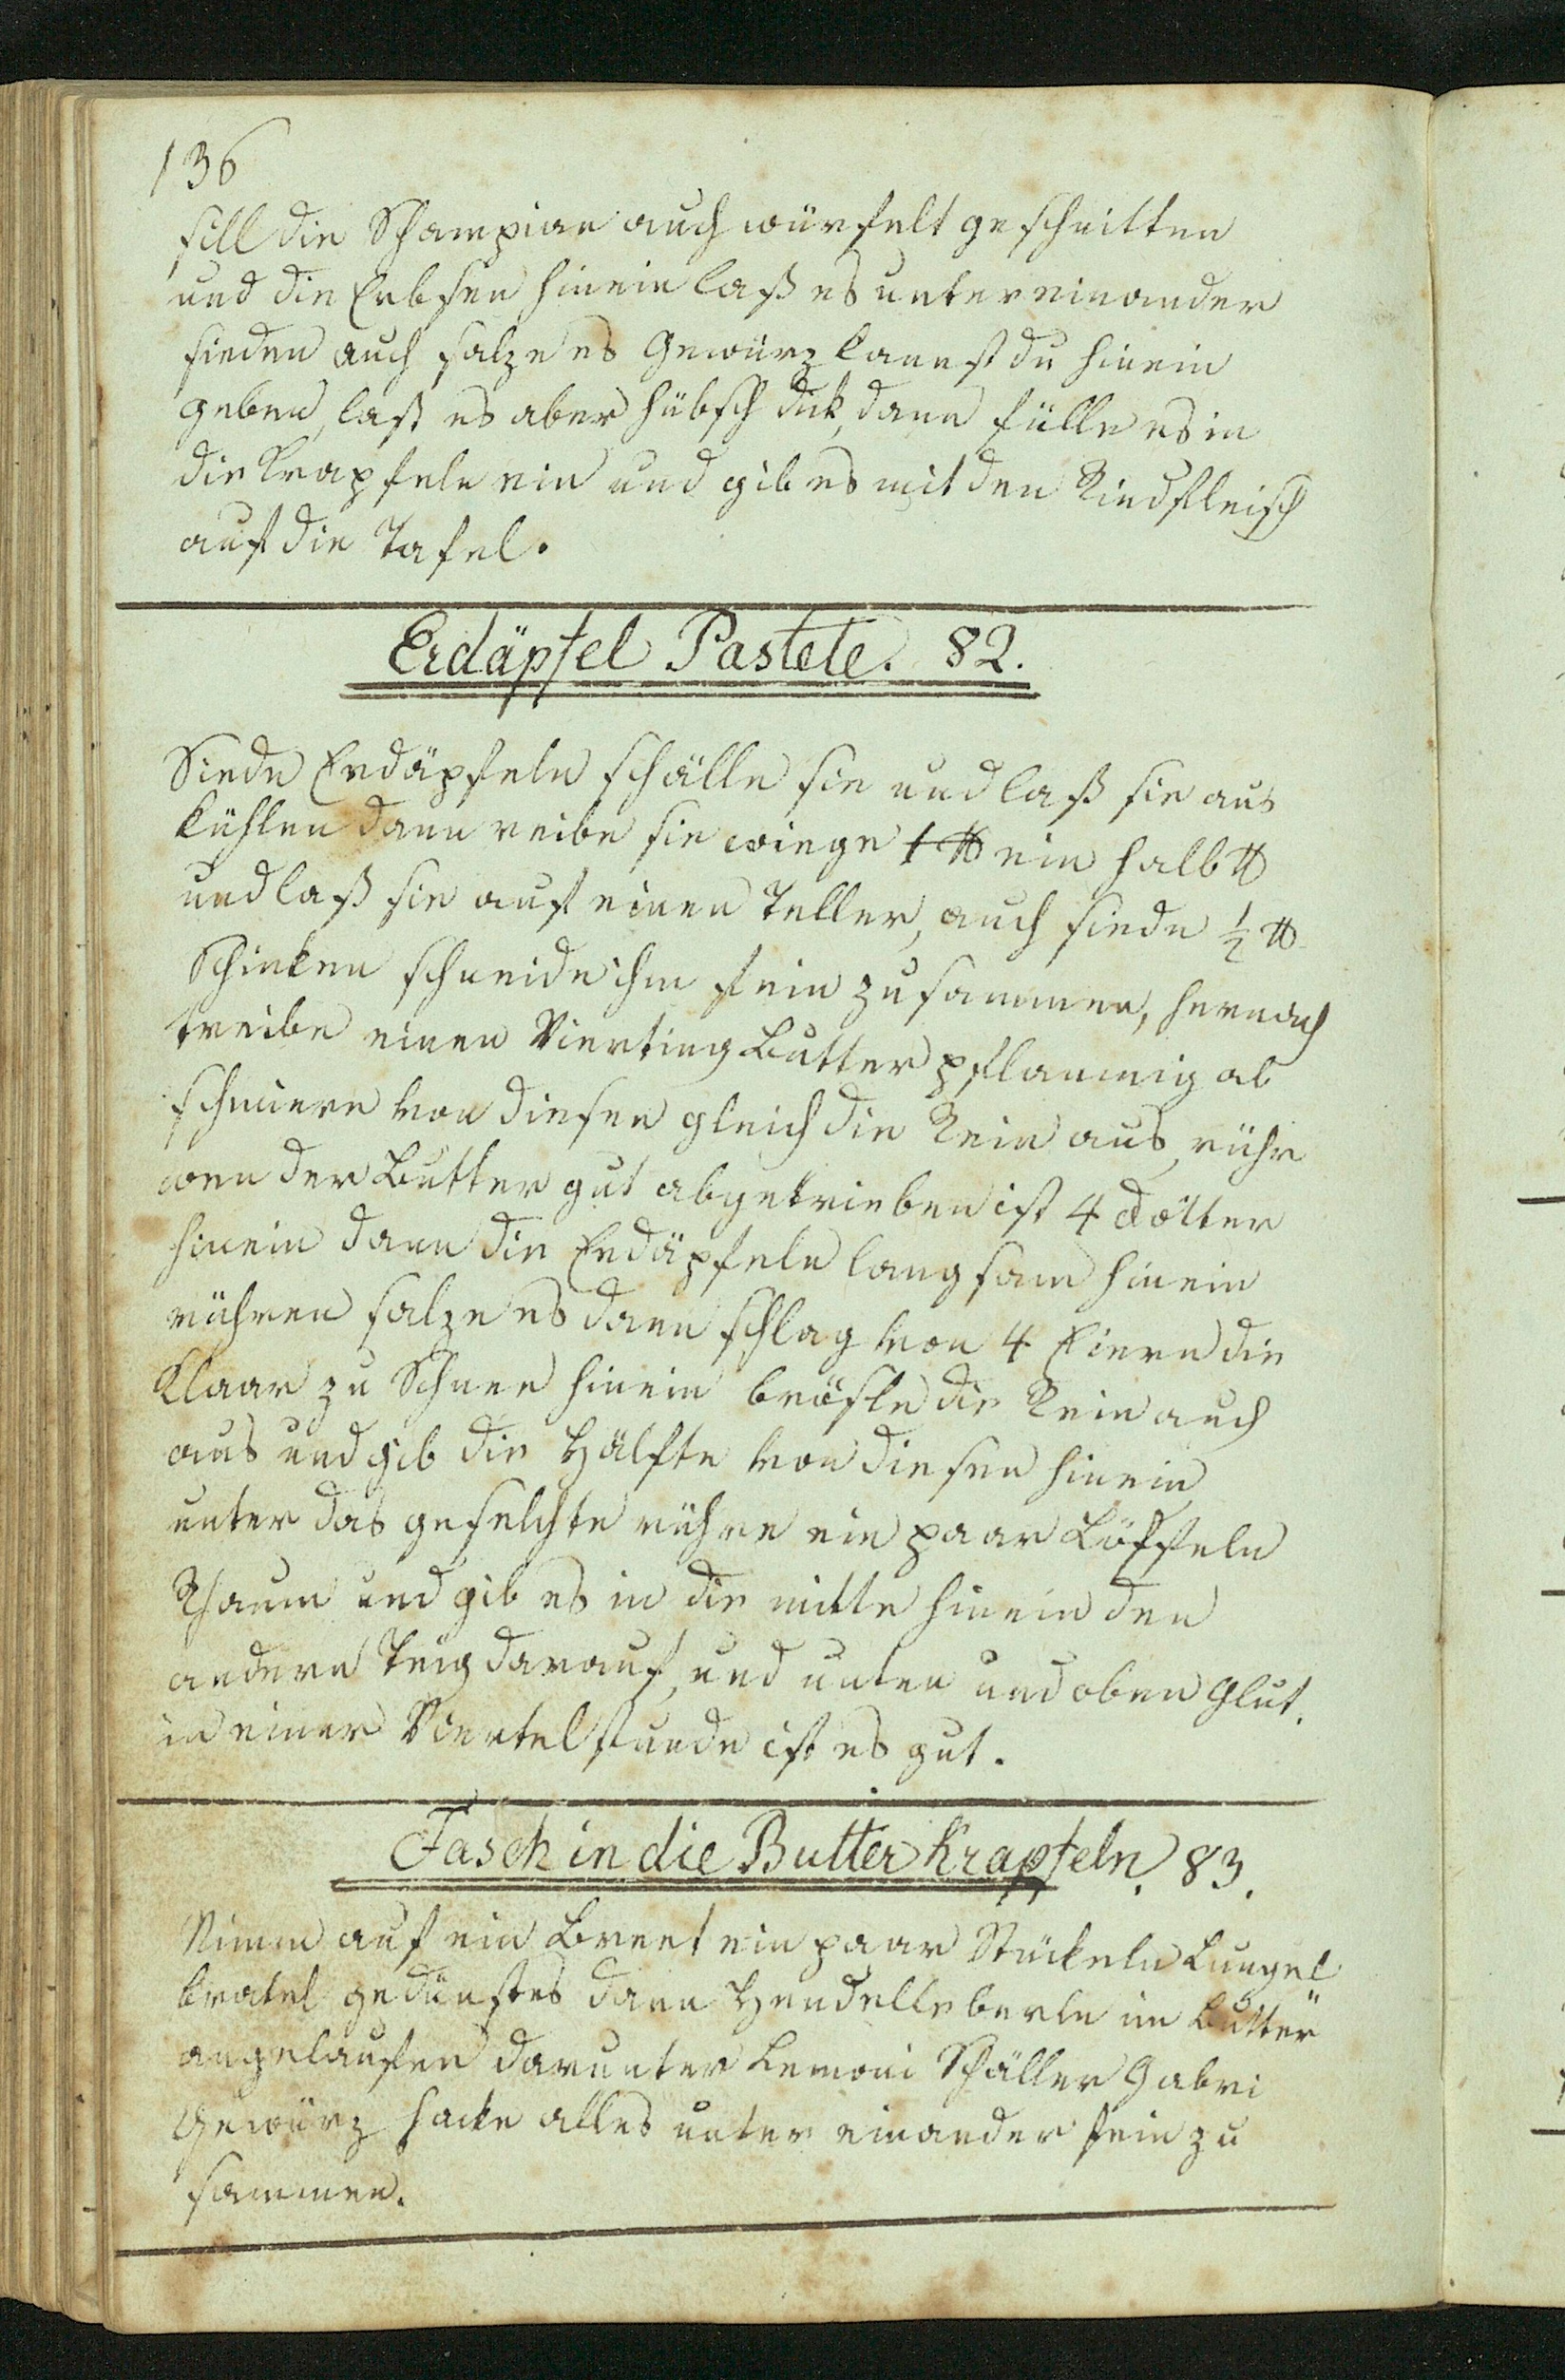 136
füll die Schampian auch würfelt geschnitten
und die Erbsen hinein laß es untereinander
sieden auch salze es Gewürz kannst du hinein
geben, laß es aber hübsch dick, dann fülle es in
die Krapfeln ein und gib es mit den Rindfleisch
auf die Tafel.
Erdäpfel Pastete. 82.
Siede Erdäpfeln schälle sie und laß sie aus
kühlen dann reibe sie wiege 1 ℔ ein halb ℔
und laß sie auf einen Teller, auch siede ½ ℔
Schinken schneide ihm fein zusammen, hernach
treibe einen Vierting Butter pflaumig ab
schmiere von diesen gleich die Rein aus, rühr
wen der Butter gut abgetrieben ist 4 Dötter
hinein dann die Erdäpfeln langsam hinein
rühren salze es dann schlag von 4 Eiern die
Klaar zu Schnee hinein brösle die Rein auch
aus und gib die Hälfte von diesen hinein
unter das geselchte rühre ein paar Löffeln
Rhaum und gib es in die mitte hinein den
andern Teig darauf, und unten und oben Glut.
in einer Viertelstunde ist es gut.
Fasch in die Butter Krapfeln. 83.
Nimm auf ein Breet ein paar Stückeln Lungel
bratel gedünstes dann Hendelleberln im Butter
angelaufen darunter Lemoni Schäller Gabri
Gewürz hacke alles unter einander fein zu
sammen.